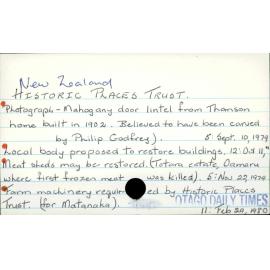 New Zealand
HISTORIC PLACES TRUST.
Photograph - Mahogany door lintel from Thomson
home built in 1902. Believed to have been carved
by Philip Godfrey). 5: Sept. 10, 1979
Local body proposed to restore buildings, 12: Oct 11,"
Meat sheds may be restored. (Totara estate, Oamaru
where first frozen meat was killed). 5: Nov 22, 1979
Farm machinery required by Historic Places
Trust. (for Matanaka). OTAGO DAILY TIMES
11. Feb 20, 1980